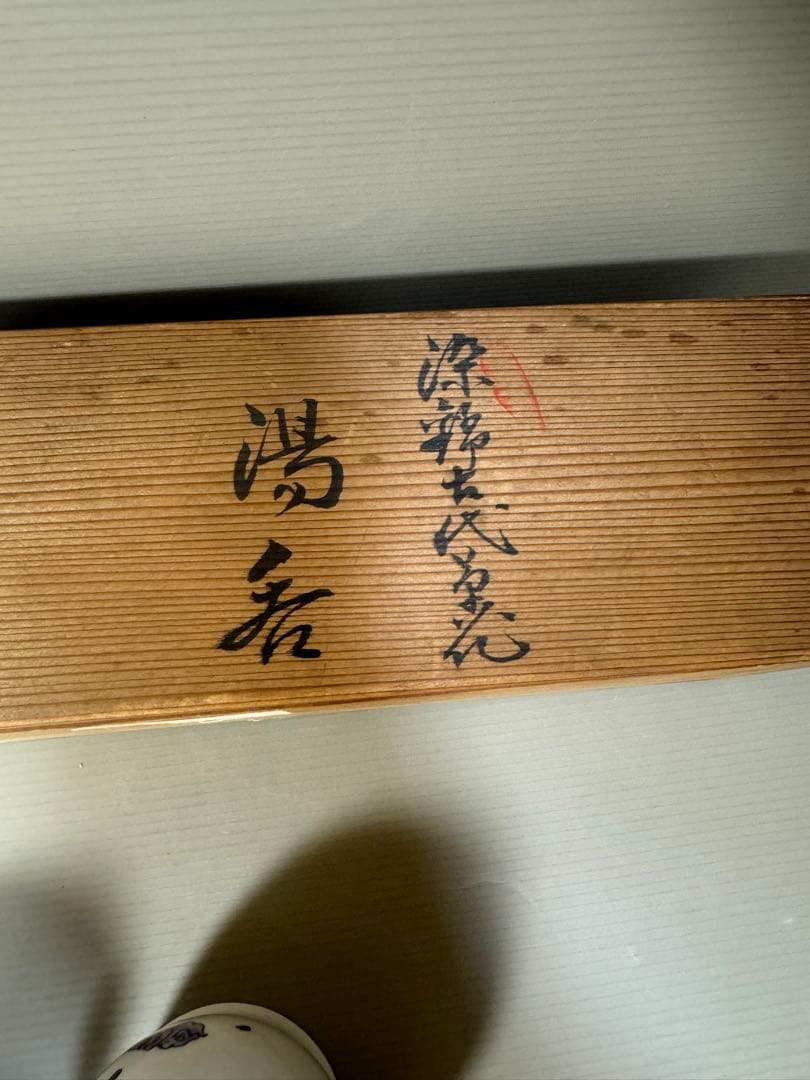 染錦古代草花
湯呑